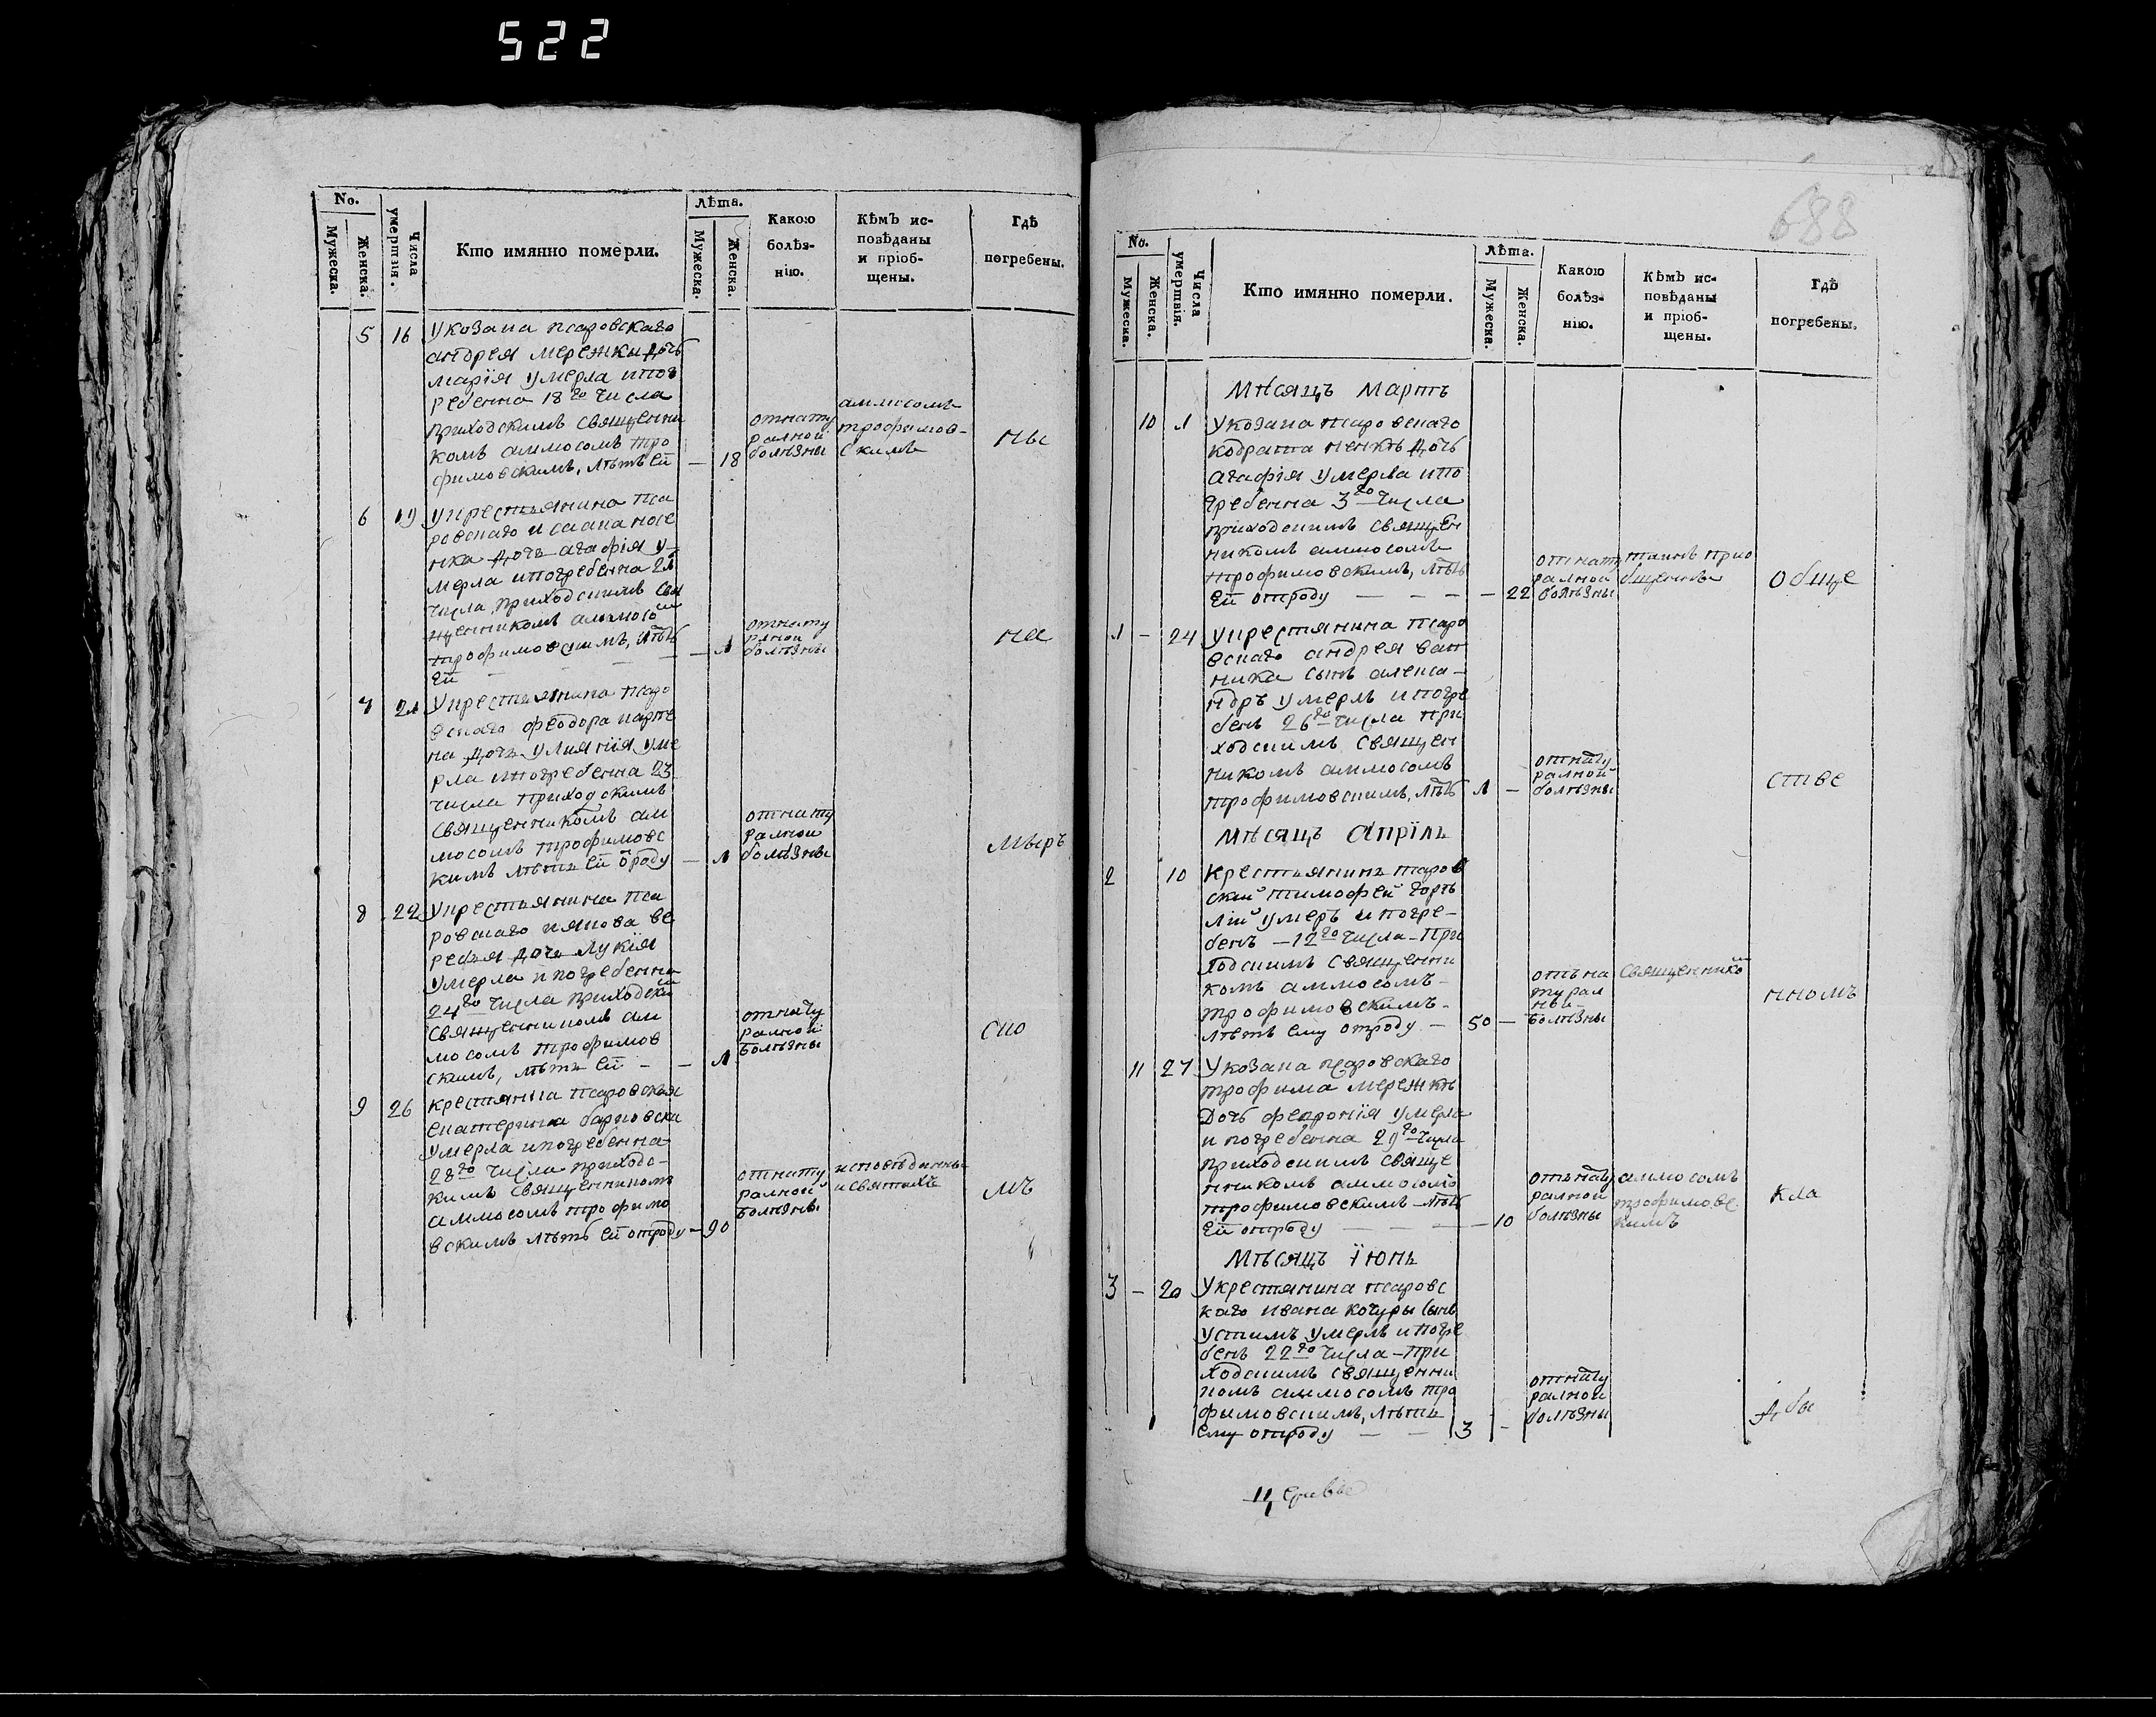 522
No.
Мужеска.
Женска.
Числа умертвія.
Кто имянно померли.
Лѣта.
Мужеска.
Женска.
Какою болѣз-
нію.
Кѣмъ ис-
повѣданы
и пріоб-
щены.
Гдѣ
погребены.
5 16 Укозака псаровскаго
андрея мережки дочь
марїя умерла и пог
ребенна 18го числа
приходскимъ священни
комъ аммосомъ тро
фимовскимъ, лѣтъ ей — 18
отнату
ралной
болѣзны
аммосомъ
трофимов-
скимъ
ны
6 19 Укрестьянина пса
ровскаго
нка дочь агафїя у-
мерла и погребенна 21
числа приходскимъ свя
щенникомъ аммосо
трофимовскимъ, лѣтъ
ей — — — 1
отнату
ралной
болѣзны
на
7 21 Укрестьянина псаро
вскаго феодора
на дочь улиянїя уме
рла и погребенна 23
числа приходскимъ
священникомъ ам
мосомъ трофимовс
кимъ лѣтъ ей ѿроду — 1
отнату
ралной
болѣзны
8 22 Укрестьянина пса
ровскаго якова ве
ребья дочь лукїя
умерла и погребенна
24го числа приходски
священникомъ ам
мосомъ трофимов
скимъ, лѣтъ ей — — 1
отнату
ралной
болѣзны
ско
9 26 крестянка псаровская
екатерина
умерла и погребенна
28го числа приходс-
кимъ священникомъ
аммосомъ трофимо
вскимъ лѣтъ ей отроду — 90
отнату
ралной
болѣзны
исповѣданны
и святыхъ
мъ
688
No.
Мужеска.
Женска.
Числа умертвія.
Кто имянно померли.
Лѣта.
Мужеска.
Женска.
Какою
болѣз-
нію.
Кѣмъ ис-
повѣданы
и пріоб-
щены.
Гдѣ
погребены.
Мѣсяцъ Мартъ
10 1 Укозака псаровскаго
кодрата дочь
агафїя умерла и по
гребенна 3го числа
приходскимъ священ
никомъ аммосомъ
трофимовскимъ, лѣтъ
ей отроду — — — — 22
отнату
ралной
болѣзны
таинъ прио
бщенны
обще
1 — 24 Укрестянина псаро
вскаго андрея
ника сынъ алекса-
ндръ умерлъ и погре
бенъ 26го числа при
ходскимъ священ
никомъ аммосомъ
трофимовскимъ, лѣтъ 1 —
отнату
ралной
болѣзны
стве
Мѣсяцъ Апрїль
2 10 Крестьянинъ псаров
ский тимофей
умеръ и погре-
бенъ — 12го числа — при
ходскимъ священни
комъ аммосомъ-
трофимовскимъ-
лѣтъ ему отроду — 50 —
отъ на
турал
ной-
болѣзны
священнико
нномъ
11 27 Укозака псаровскаго
трофима мережкѣ
дочь февронїя умерла
и погребенна 29го числа
приходскимъ свяще
нникомъ аммосомъ
трофимовскимъ лѣтъ
ей отроду — — — 10
отнату
ралной
болѣзны
аммосомъ
трофимовс
кимъ
кла
Мѣсяцъ їюнь
3 — 20 Укрестянина псаровс
каго ивана кочуры сынъ
устимъ умерлъ и погре
бенъ 22го числа — при
ходскимъ священни
комъ аммосомъ тро
фимовскимъ, лѣтъ
ему отроду — — 3 —
отнату
ралной
болѣзны